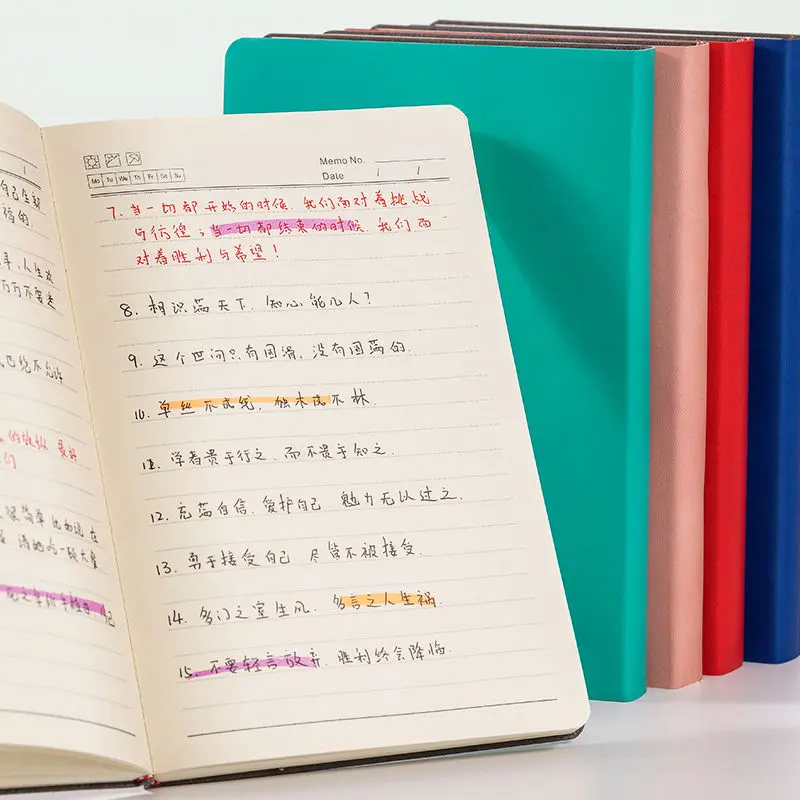 福的.
人生
万万不要走
绝不允许
的放纵 最好
们
很简单 比如说 在
请她吃一顿大餐
自己
Memo No.
Mo Tu We Th Fr Sa Su
Date / /
7. 当一切都开始的时候 我们面对着挑战
与彷徨；当一切都结束的时候 我们面
对着胜利与希望！
8. 相识满天下, 知心能几人？
9. 这个世间只有圆滑, 没有圆满的.
10. 单丝不成线, 独木成不林.
11. 学者贵于行之, 而不贵于知之.
12. 充满自信, 爱护自己 魅力无以过之.
13. 勇于接受自己 尽管不被接受.
14. 多门之室生风, 多言之人生祸.
15. 不要轻言放弃, 胜利终会降临.